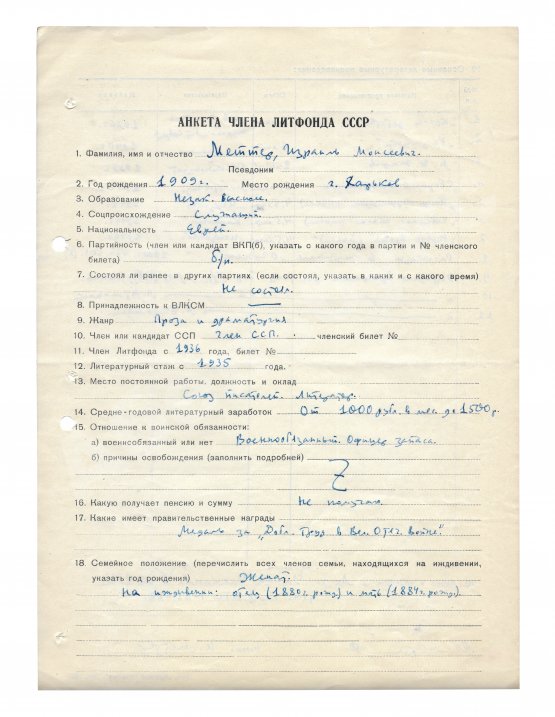 АНКЕТА ЧЛЕНА ЛИТФОНДА СССР
1. Фамилия, имя и отчество Меттер, Израиль Моисеевич.
Псевдоним
2. Год рождения 1909 г. Место рождения г. Харьков
3. Образование Незак. высшее.
4. Соцпроисхождение Служащий.
5. Национальность Еврей.
6. Партийность (член или кандидат ВКП(б), указать с какого года в партии и № членского
билета) б/п.
7. Состоял ли ранее в других партиях (если состоял, указать в каких и с какого время)
Не состоял.
8. Принадлежность к ВЛКСМ —
9. Жанр Проза и драматургия
10. Член или кандидат ССП Член ССП. членский билет №
11. Член Литфонда с 1936 года, билет №
12. Литературный стаж с 1935 года.
13. Место постоянной работы, должность и оклад
Союз писателей. Литератор.
14. Средне-годовой литературный заработок От 1000 руб. в мес до 1500 р.
15. Отношение к воинской обязанности:
а) военнообязанный или нет Военнообязанный. Офицер запаса.
б) причины освобождения (заполнить подробней)
16. Какую получает пенсию и сумму Не получаю.
17. Какие имеет правительственные награды
Медаль за „Добл. труд в Вел. Отеч. войне".
18. Семейное положение (перечислить всех членов семьи, находящихся на иждивении,
указать год рождения) Женат.
На иждивении: отец (1880 г. рожд) и мать (1884 г. рожд).